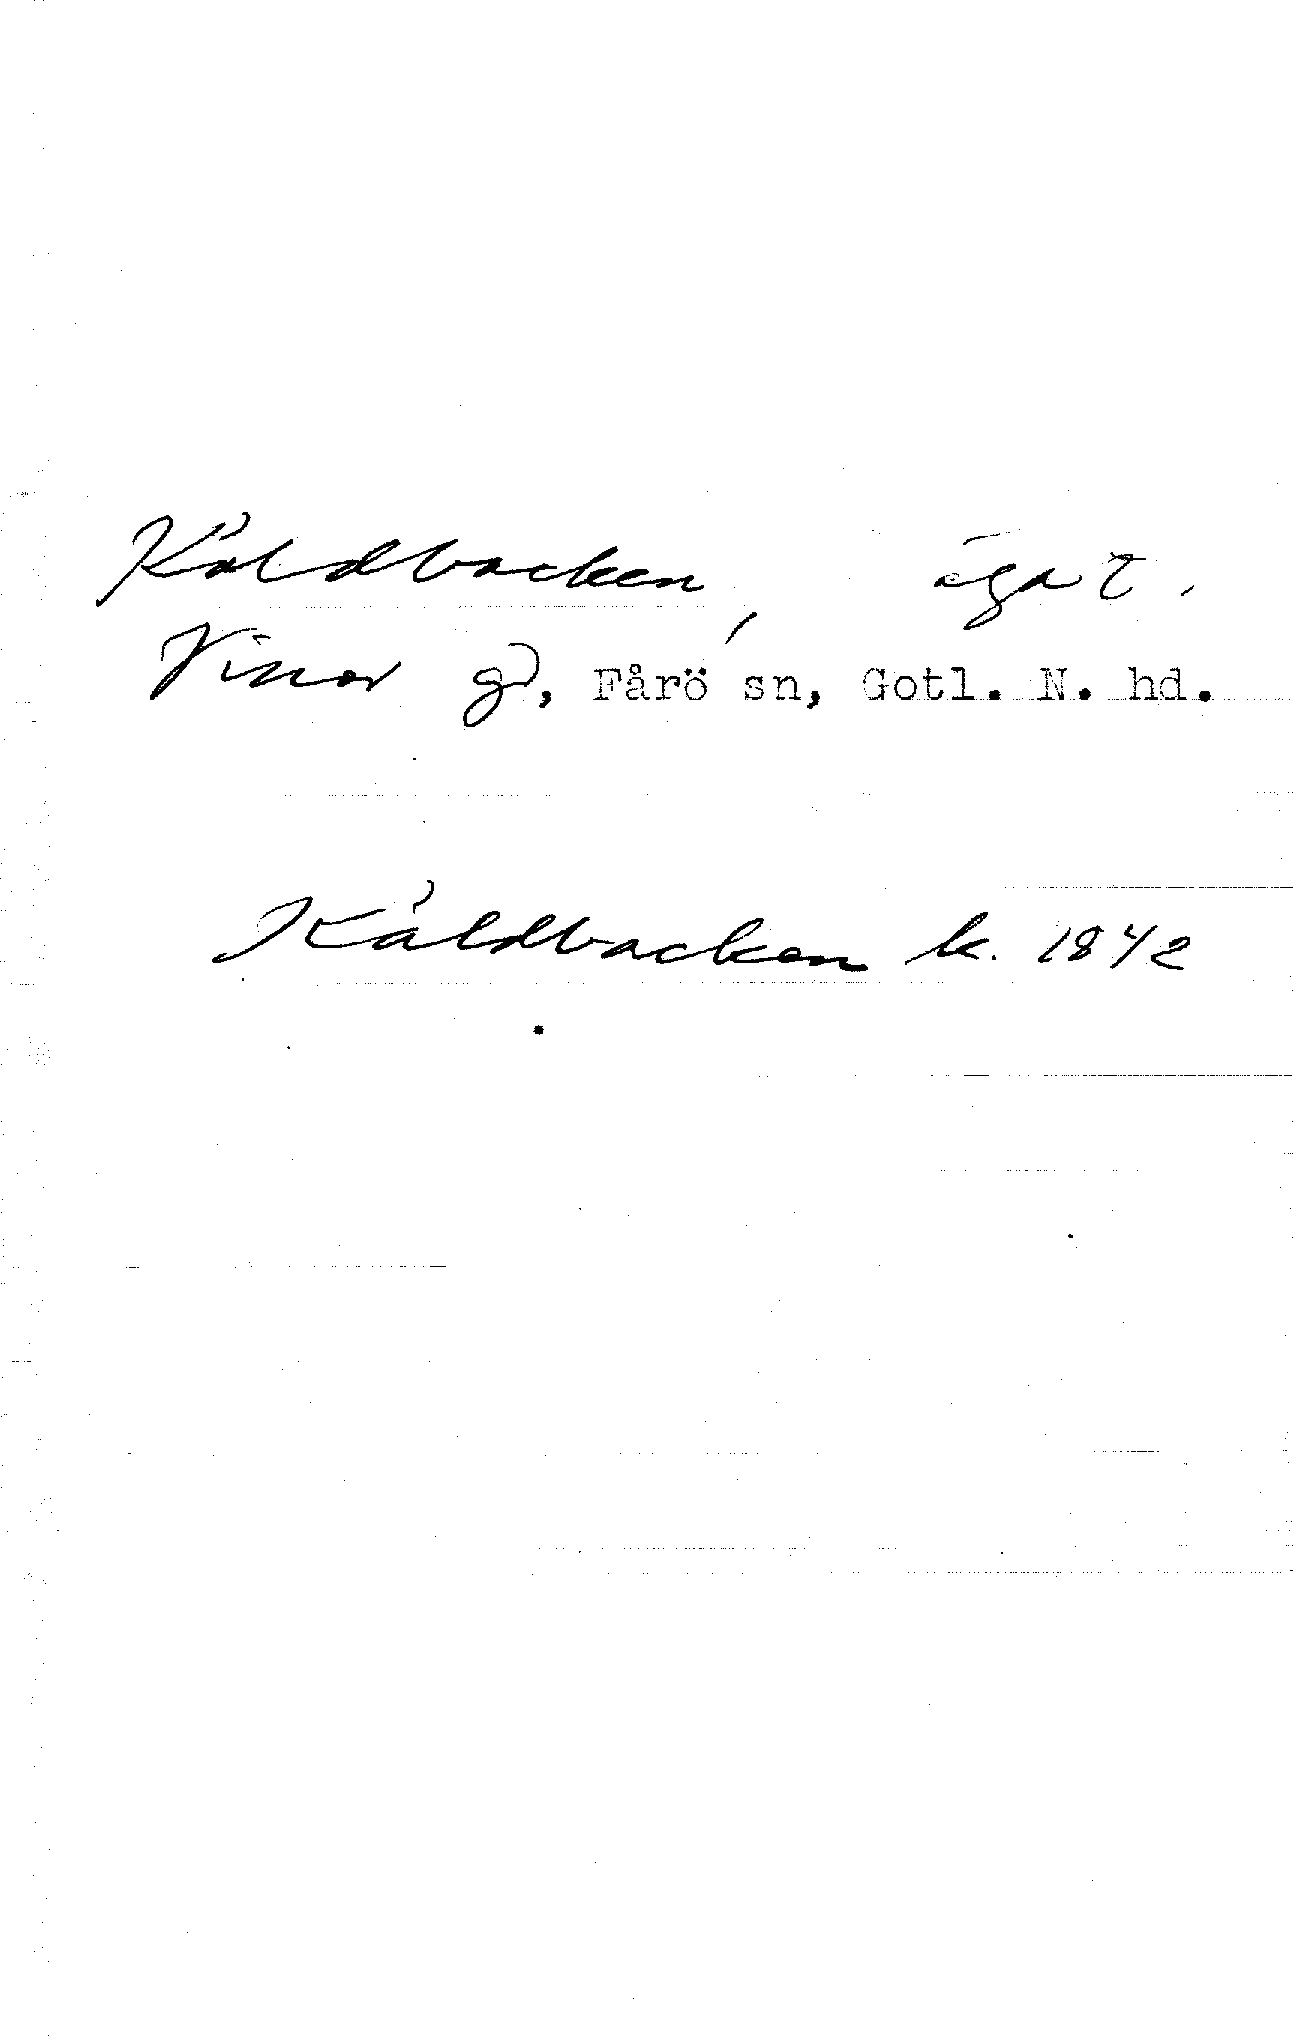 Käldbacken, ägot.
Vinor gd, Fårö sn, Gotl. N. hd.
Käldbacken k. 1842